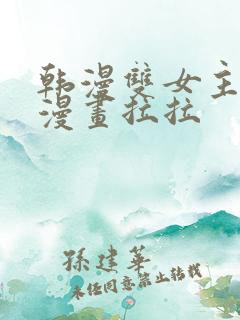 韩漫雙女主
漫畫拉拉
孫建華
未经同意禁止转载